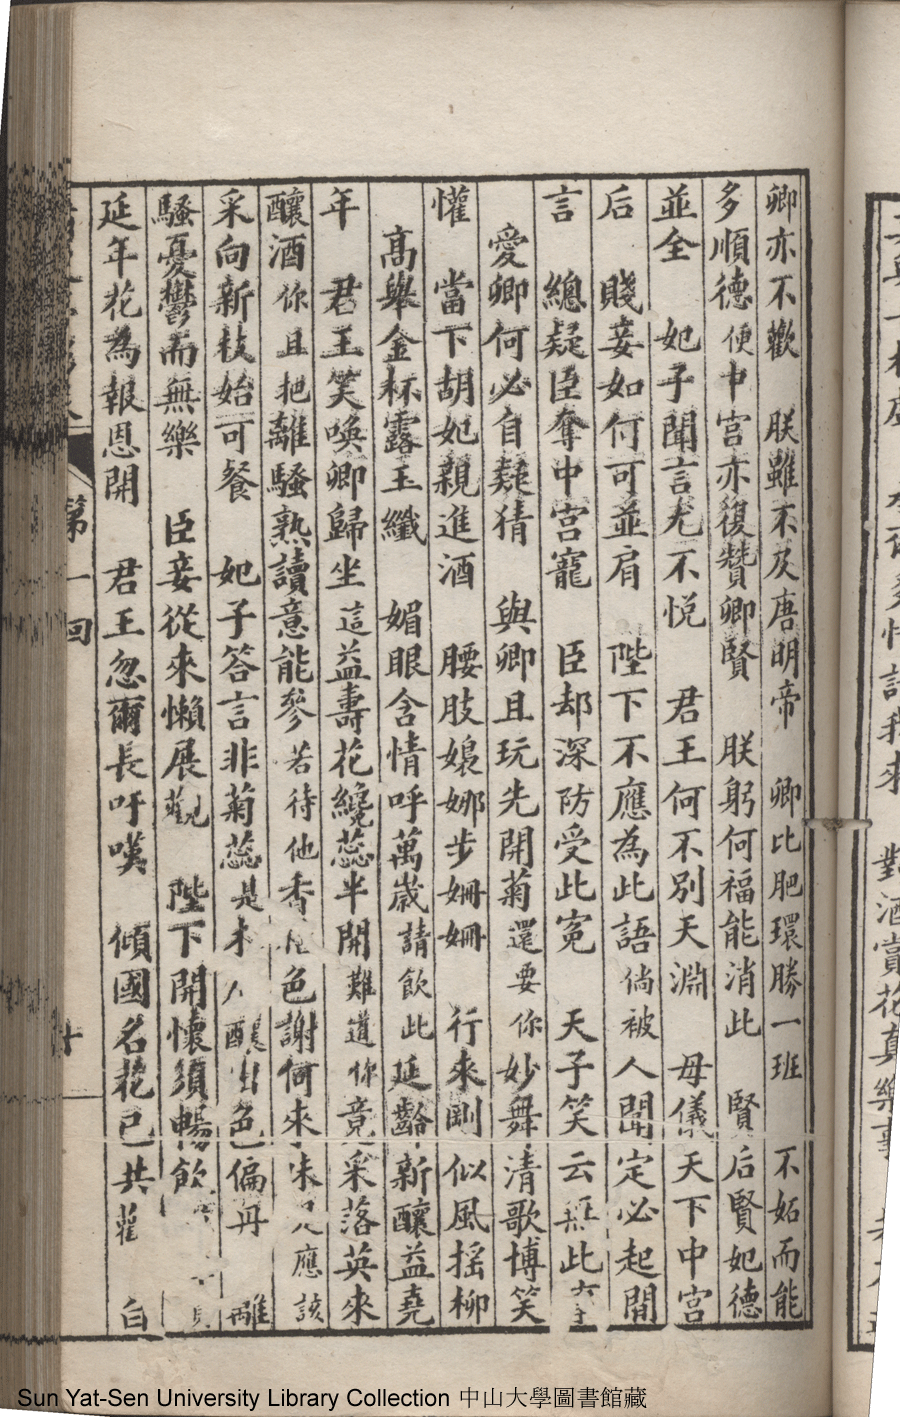 卿亦不歡　朕雖不及唐明帝　卿比肥環勝一班　不妬而能
多順德便中宮亦復贊卿賢　朕躬何福能消此　賢后賢妃德
並全　妃子聞言尤不悅　君王何不別天淵　母儀天下中宮
后　賤妾如何可並肩　陛下不應為此語倘被人聞定必起閒
言　總疑臣奪中宮寵　臣却深防受此冤　天子笑云無此
愛卿何必自疑猜　與卿且玩先開菊還要你妙舞清歌博笑
懽　當下胡妃親進酒　腰肢嬝娜步姍姍　行來剛似風搖柳
高舉金杯露玉纖　媚眼含情呼萬歲請飲此延齡新釀益堯
年　君王笑喚卿歸坐這益壽花纔蕊半開難道你竟采落英來
釀酒你且把離騷熟讀意能參若待他香 色謝何來 味 應該
采向新枝始可餐　妃子答言非菊蕊是 人釀出色偏丹　離
騷憂鬱而無樂　臣妾從來懶展觀　陛下開懷須暢飲
延年花為報恩開　君王忽爾長吁嘆　傾國名花已共 　白
第一回
十
Sun Yat-Sen University Library Collection 中山大學圖書館藏